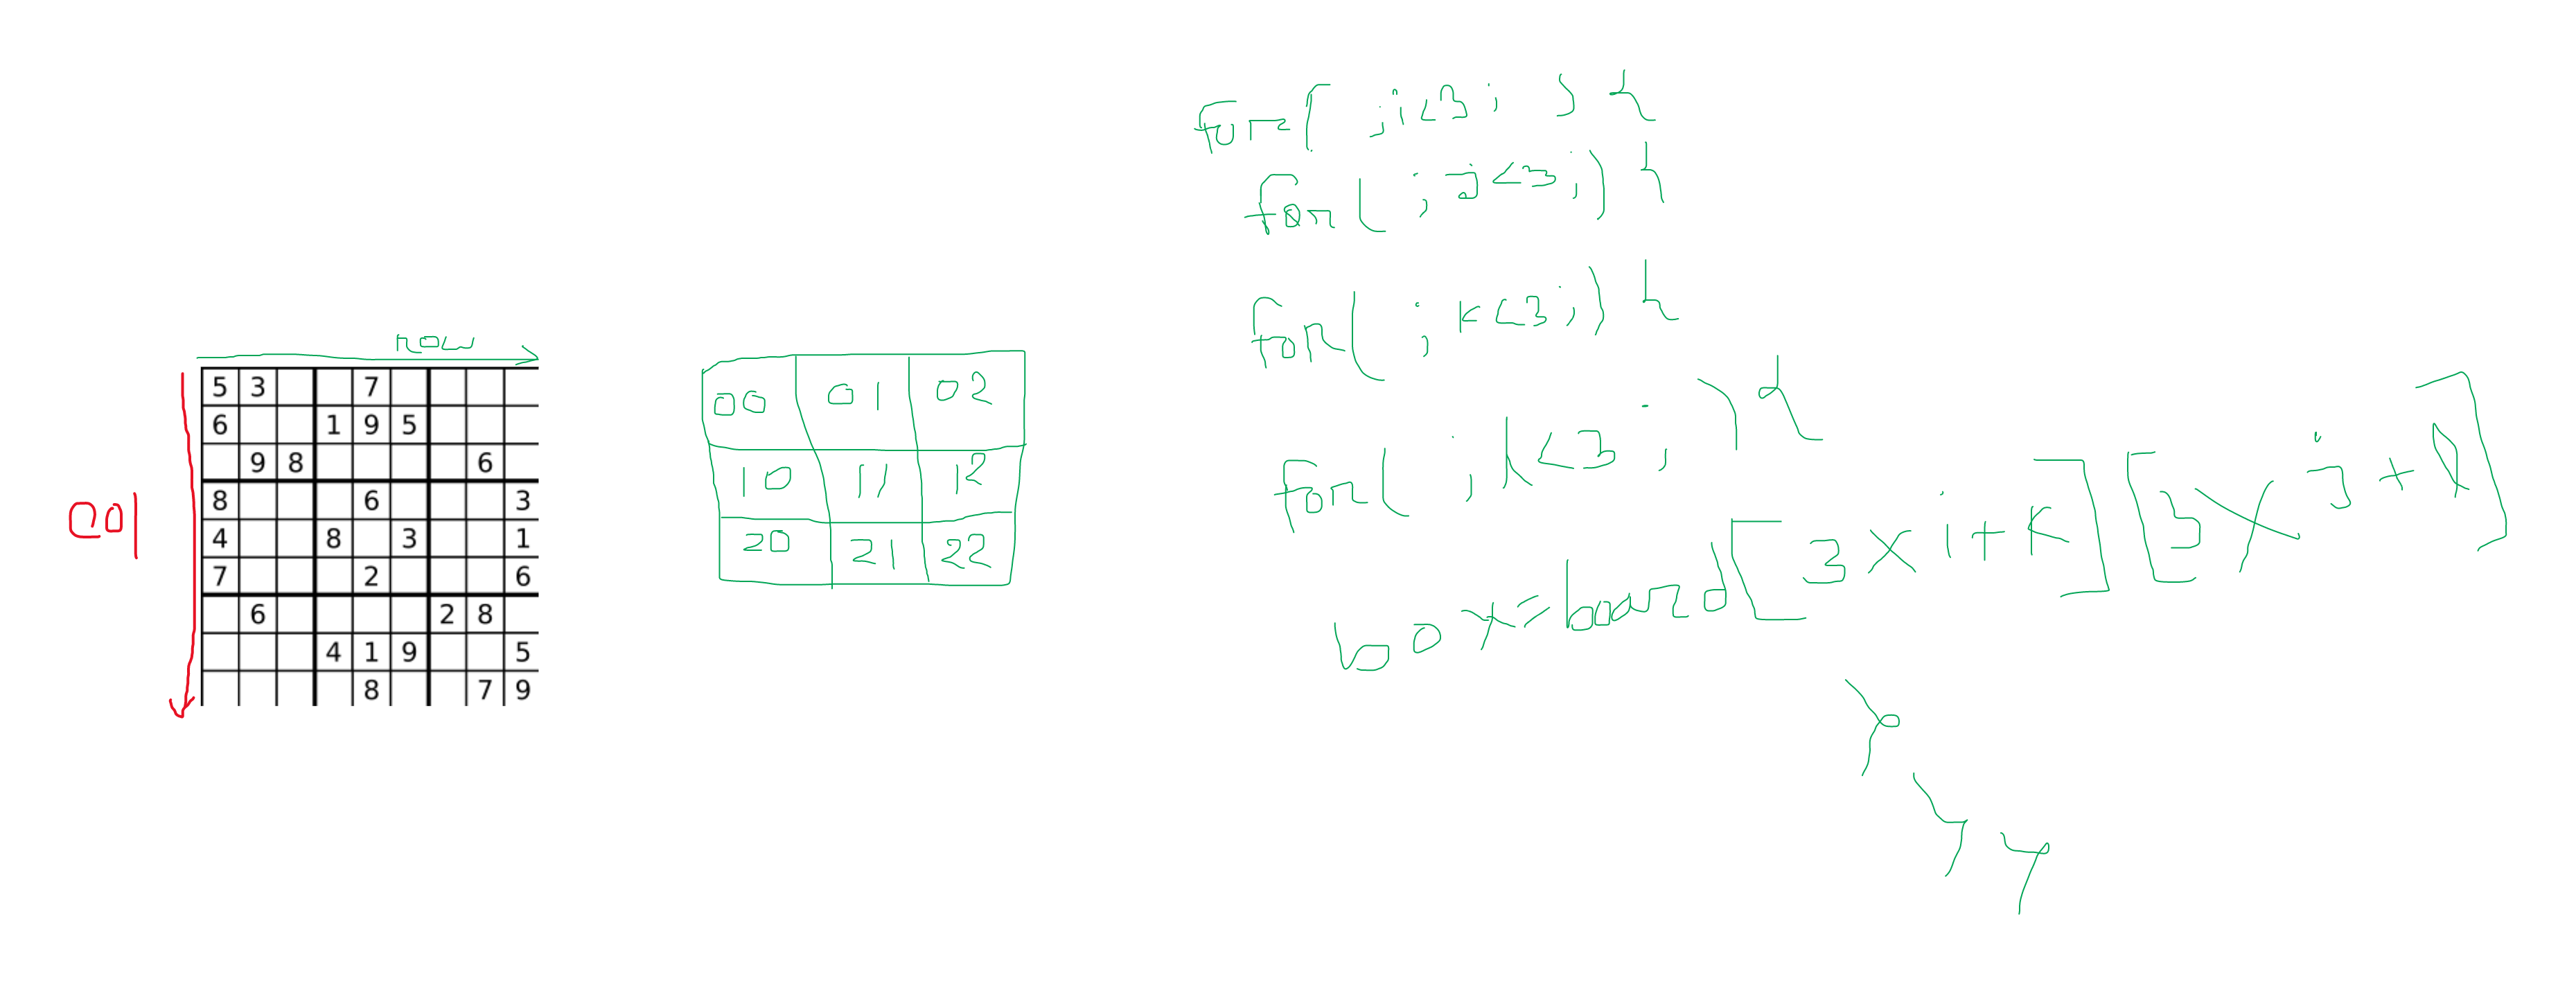 row
5 3 7
6 1 9 5
9 8 6
8 6 3
col
4 8 3 1
7 2 6
6 2 8
4 1 9 5
8 7 9
00 01 02
10 11 12
20 21 22
for( ;i<3; ) {
for( ; j<3;) {
for( ; k<3;) {
for( ;l<3; ) {
box=board[3×i+k][3×j+l]
}
}
}